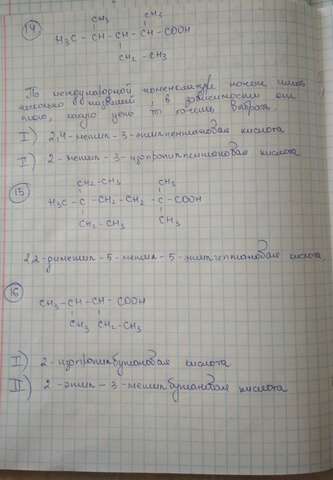 14
CH₃ CH₃
H₃C - CH - CH - CH - COOH
CH₂ - CH₃
По международной номенклатуре может иметь
несколько названий, в зависимости от
того, какую цепь ты хочешь выбрать.
I) 2,4-метил-3-этилпентановая кислота
I) 2-метил-3-изопропилпентановая кислота
15
CH₂-CH₃ CH₃
H₃C - C - CH₂ - CH₂ - C - COOH
CH₂-CH₃ CH₃
2,2-диметил-5-метил-5-этилгептановая кислота
16
CH₃ - CH - CH - COOH
CH₃ CH₂-CH₃
I) 2-изопропилбутановая кислота
II) 2-этил-3-метилбутановая кислота